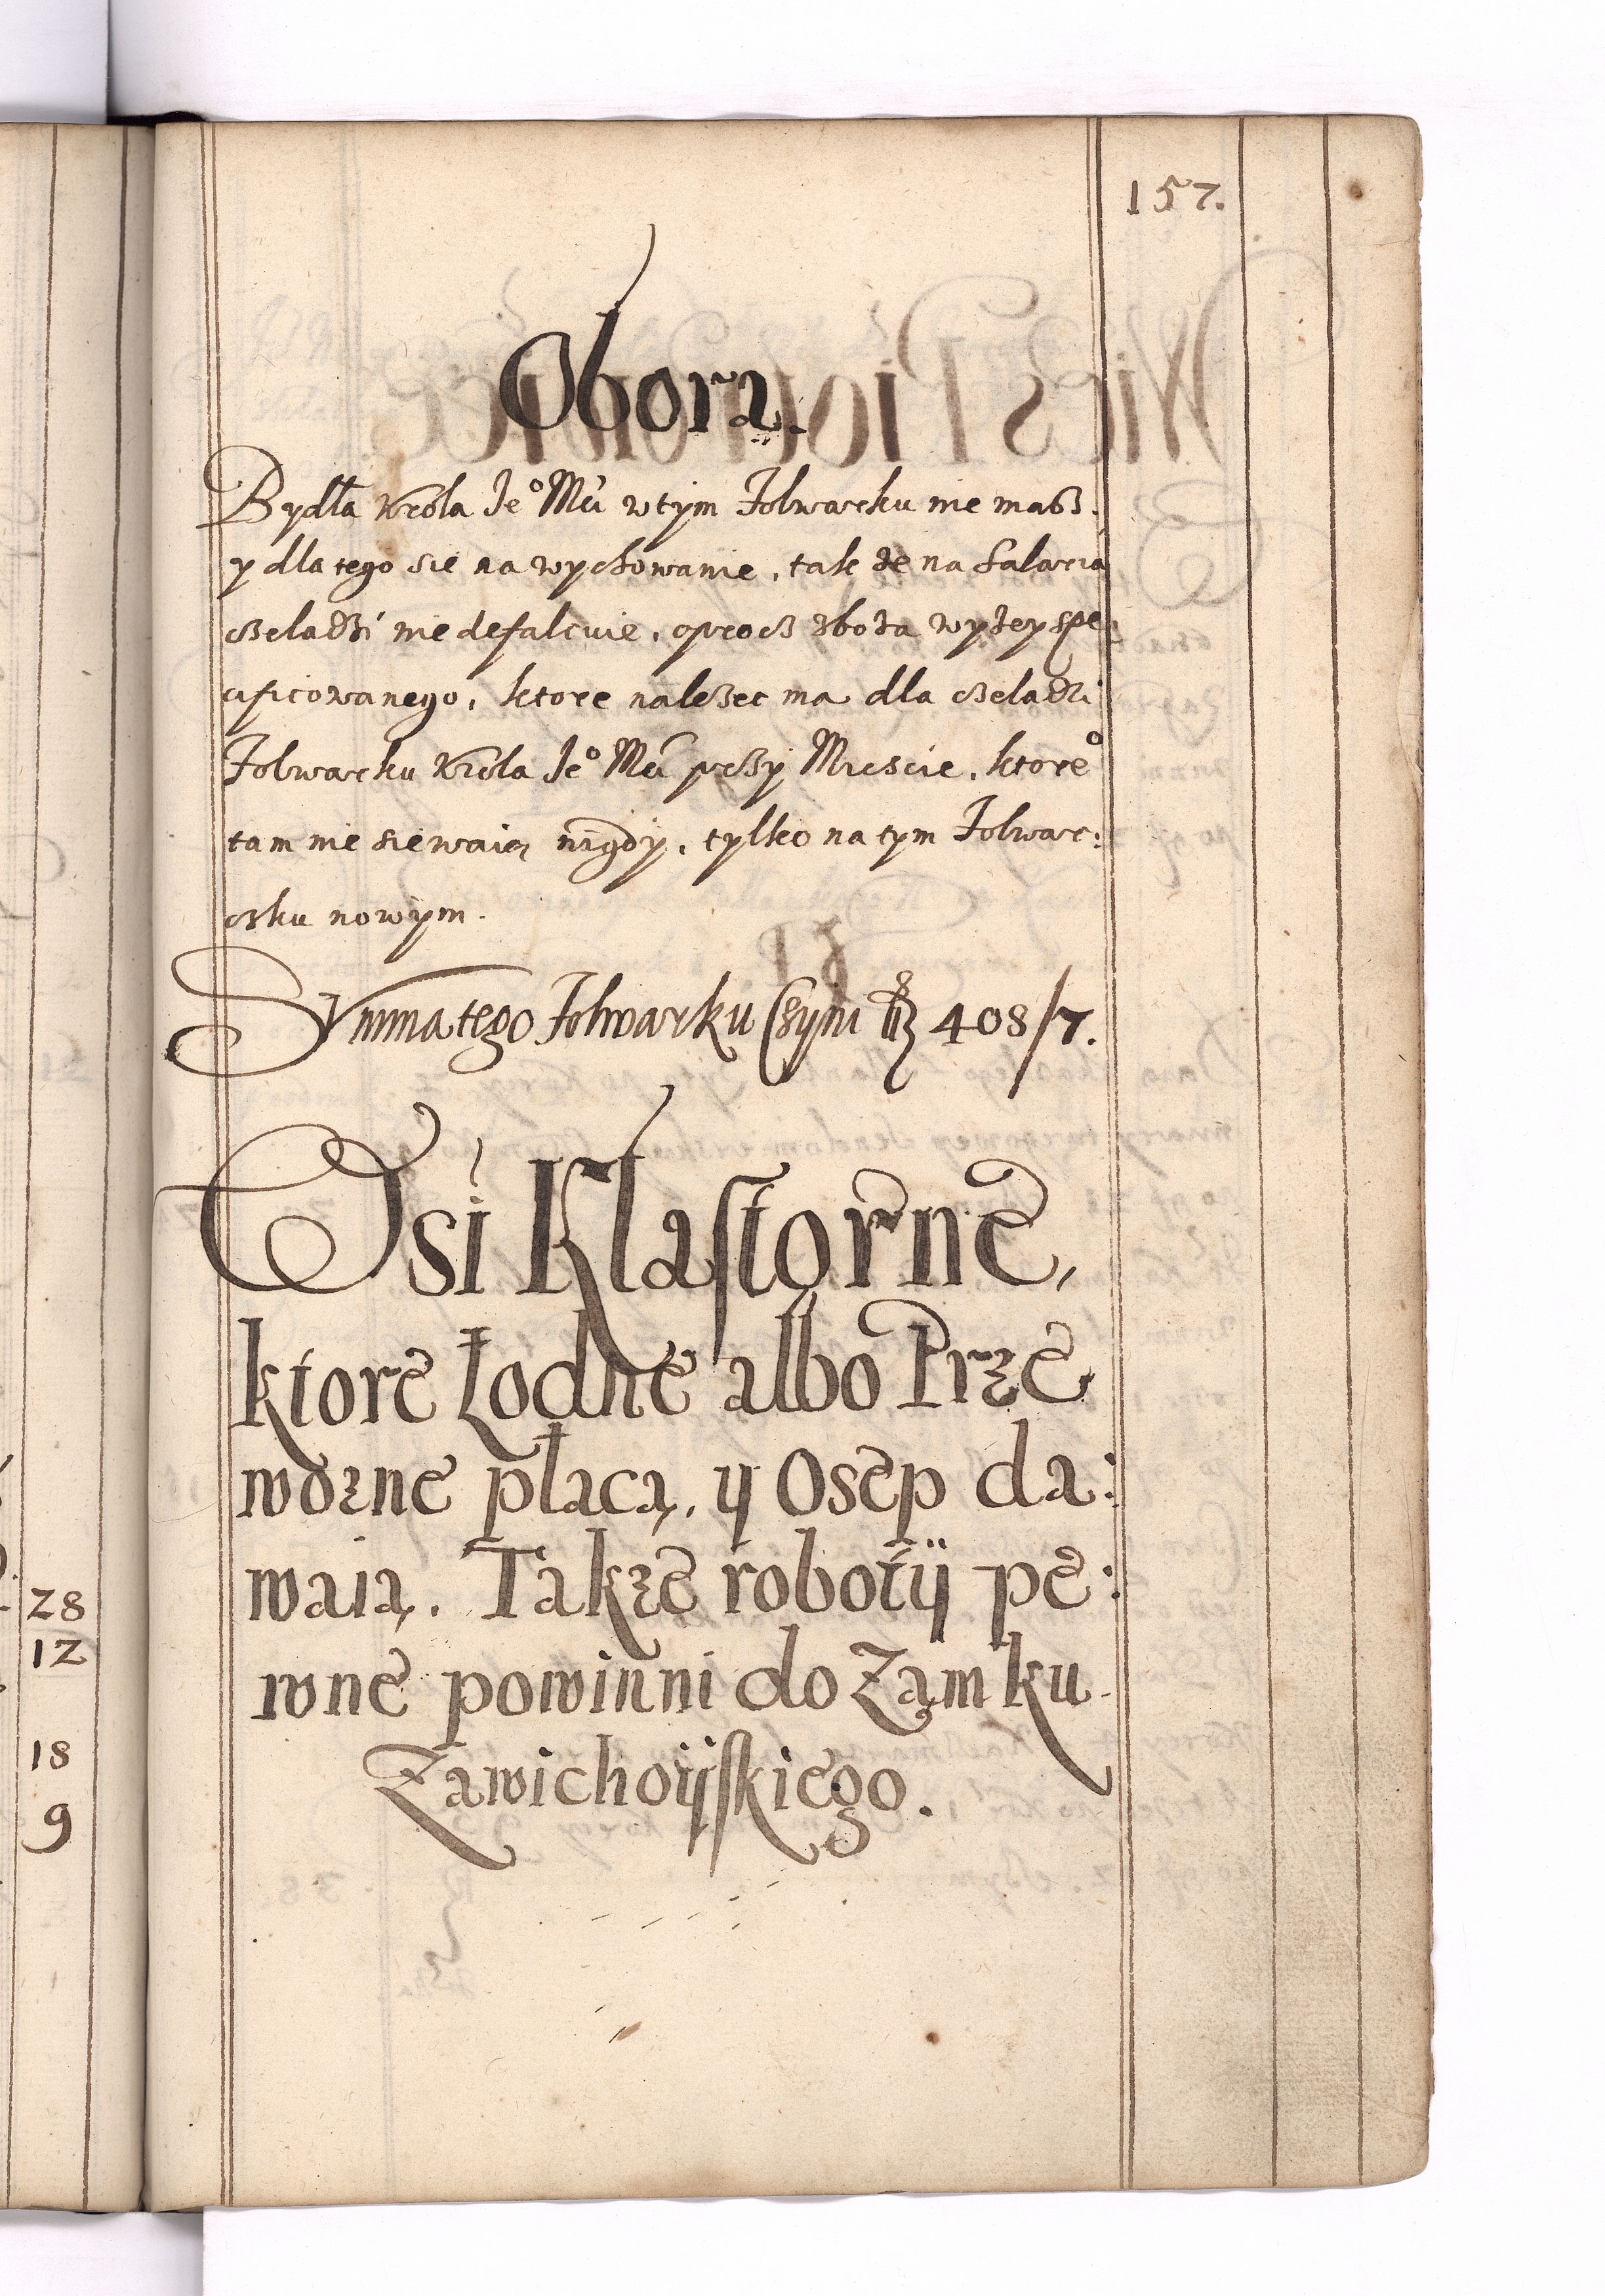 157.
Obora.
Bydła Krola Je° Mci w tym Folwarku nie masz.
y dla tego sie na wychowanie, tak że na Salaria
czeladzi nie defalcuie, oprocz zboża wyżey spe:
cificowanego, ktore należec ma dla czeladzi
Folwarku Krola Je° Mci przy Miescie, ktore°
tam nie siewaią nigdy, tylko na tym Folwar:
czku nowym.
Summa tego Folwarku Czyni 408/7.
Osi Klastorne,
ktore Łodne albo Prze
wozne płacą, y Osep da:
waią. Takze robotÿ pe:
wne powinni do Zamku
Zawichoÿskiego.
28
12
18
9